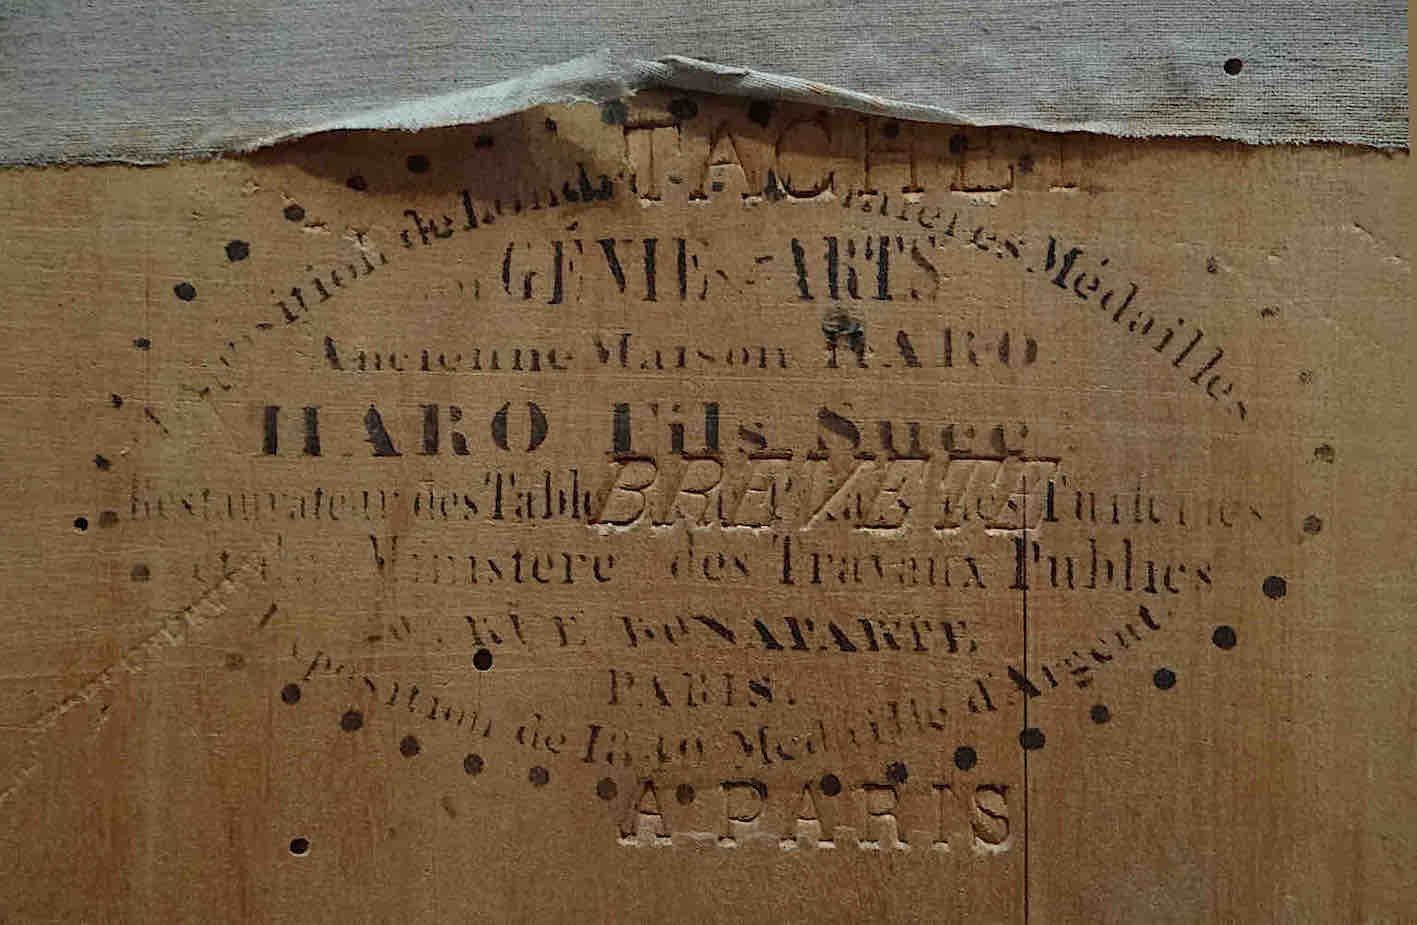 TACHET
Exposition de Londres Premières Médailles
GÉNIE ARTS
Ancienne Maison HARO
HARO Fils Succ
Restaurateur des Tableaux des Tuileries
BREVETÉ
Ministere des Travaux Publics
RUE BONAPARTE
PARIS.
Exposition de Medaille d'Argent
A PARIS